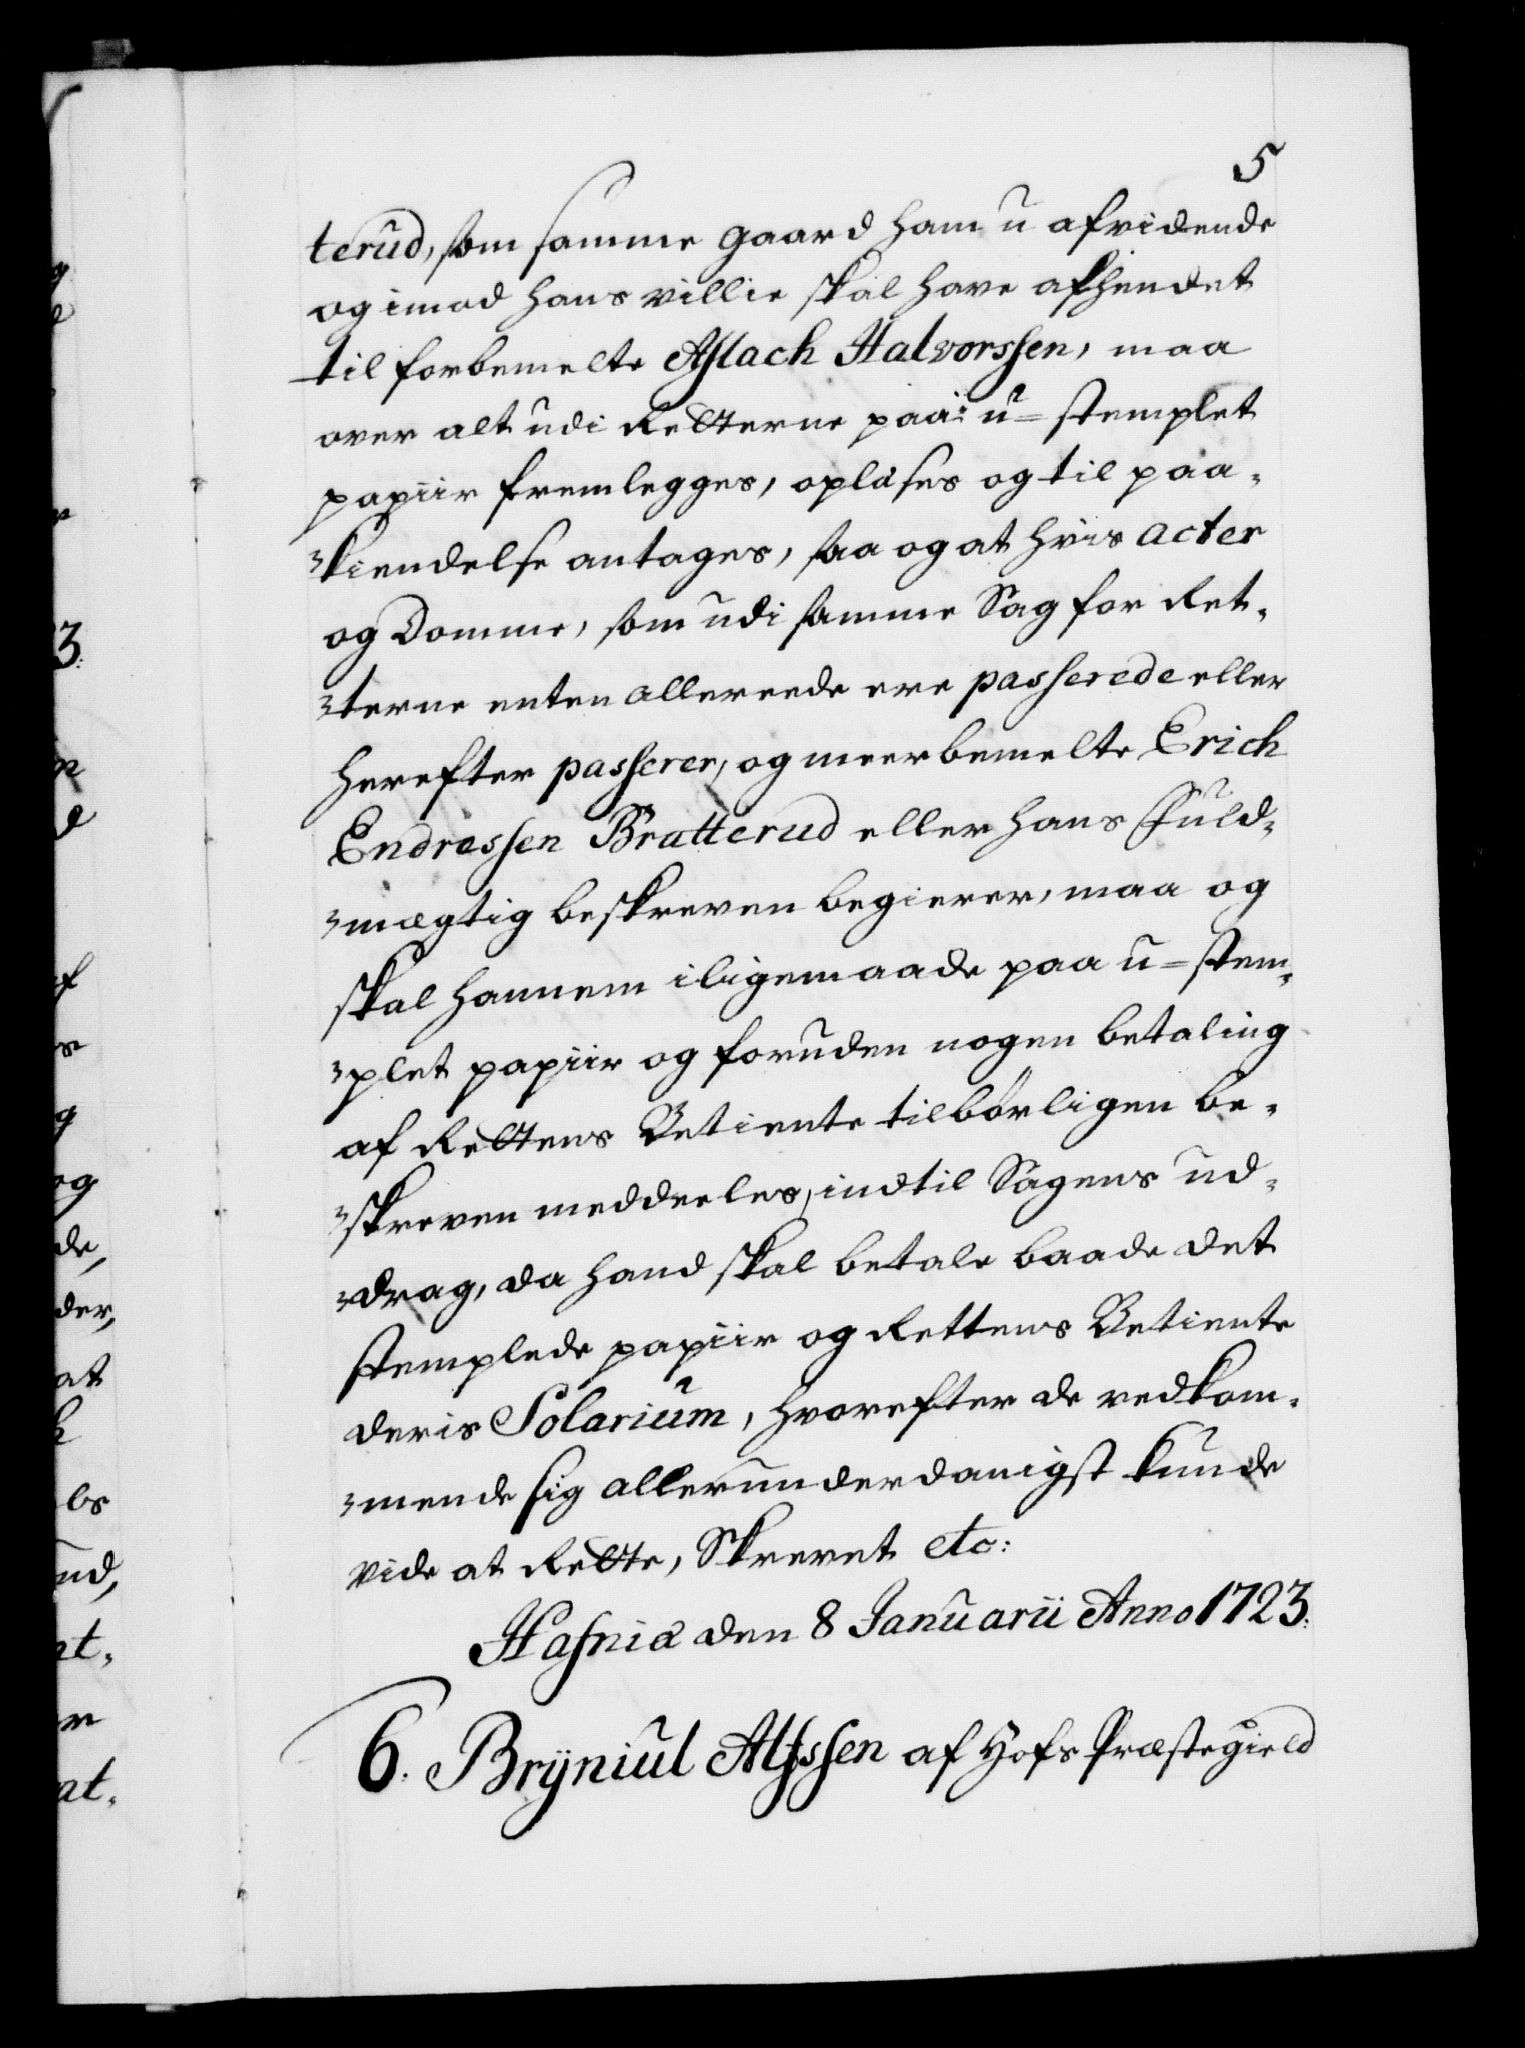 5
terud, som samme gaard ham u afvidende
og imod hans villie skal have afhendet
til forbemelte Aslach Halvorssen, maa
over alt udi Retterne paa u=stemplet
papiir fremlegges, oplæses og til paa-
kiendelse antages, saa og at hvis acter
og Domme, som udi samme Sag for Ret-
terne enten allereede ere passerede eller
herefter passerer, og meerbemelte Erich
Endressen Bratterud eller hans Fuld-
mægtig beskreven begierer, maa og
skal hannem iligemaade paa u=stem-
plet papiir og foruden nogen betaling
af Rettens Betiente tilbørligen be-
skreven meddeeles, indtil Sagens ud-
drag, da hand skal betale baade det
stemplede papiir og Rettens Betiente
deris Solarium, hvorefter de vedkom-
mende sig allerunderdanigst kunde
vide at Rette, Skrevet etc:
Hafniæ den 8 Januarii Anno 1723.
6. Brÿniul Alfssen af Hofs Præstegield